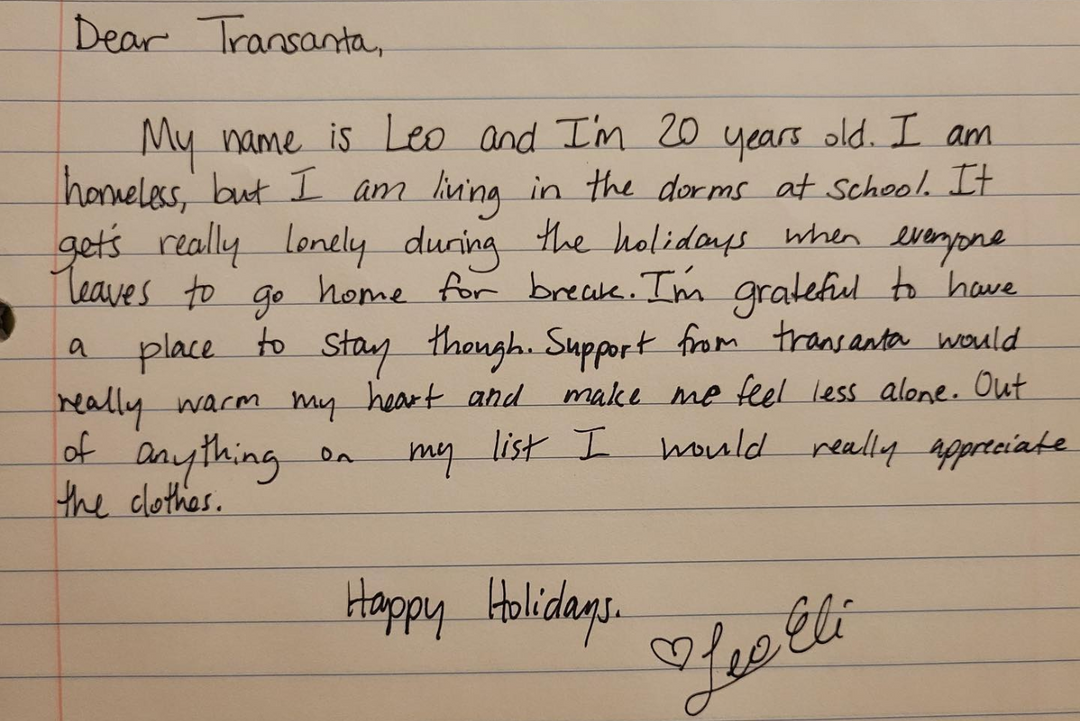 Dear Transanta,
My name is Leo and I'm 20 years old. I am
homeless, but I am living in the dorms at school. It
get's really lonely during the holidays when everyone
leaves to go home for break. I'm grateful to have
a place to stay though. Support from transanta would
really warm my heart and make me feel less alone. Out
of anything on my list I would really appreciate
the clothes.
Happy Holidays.
♡ Leo Eli